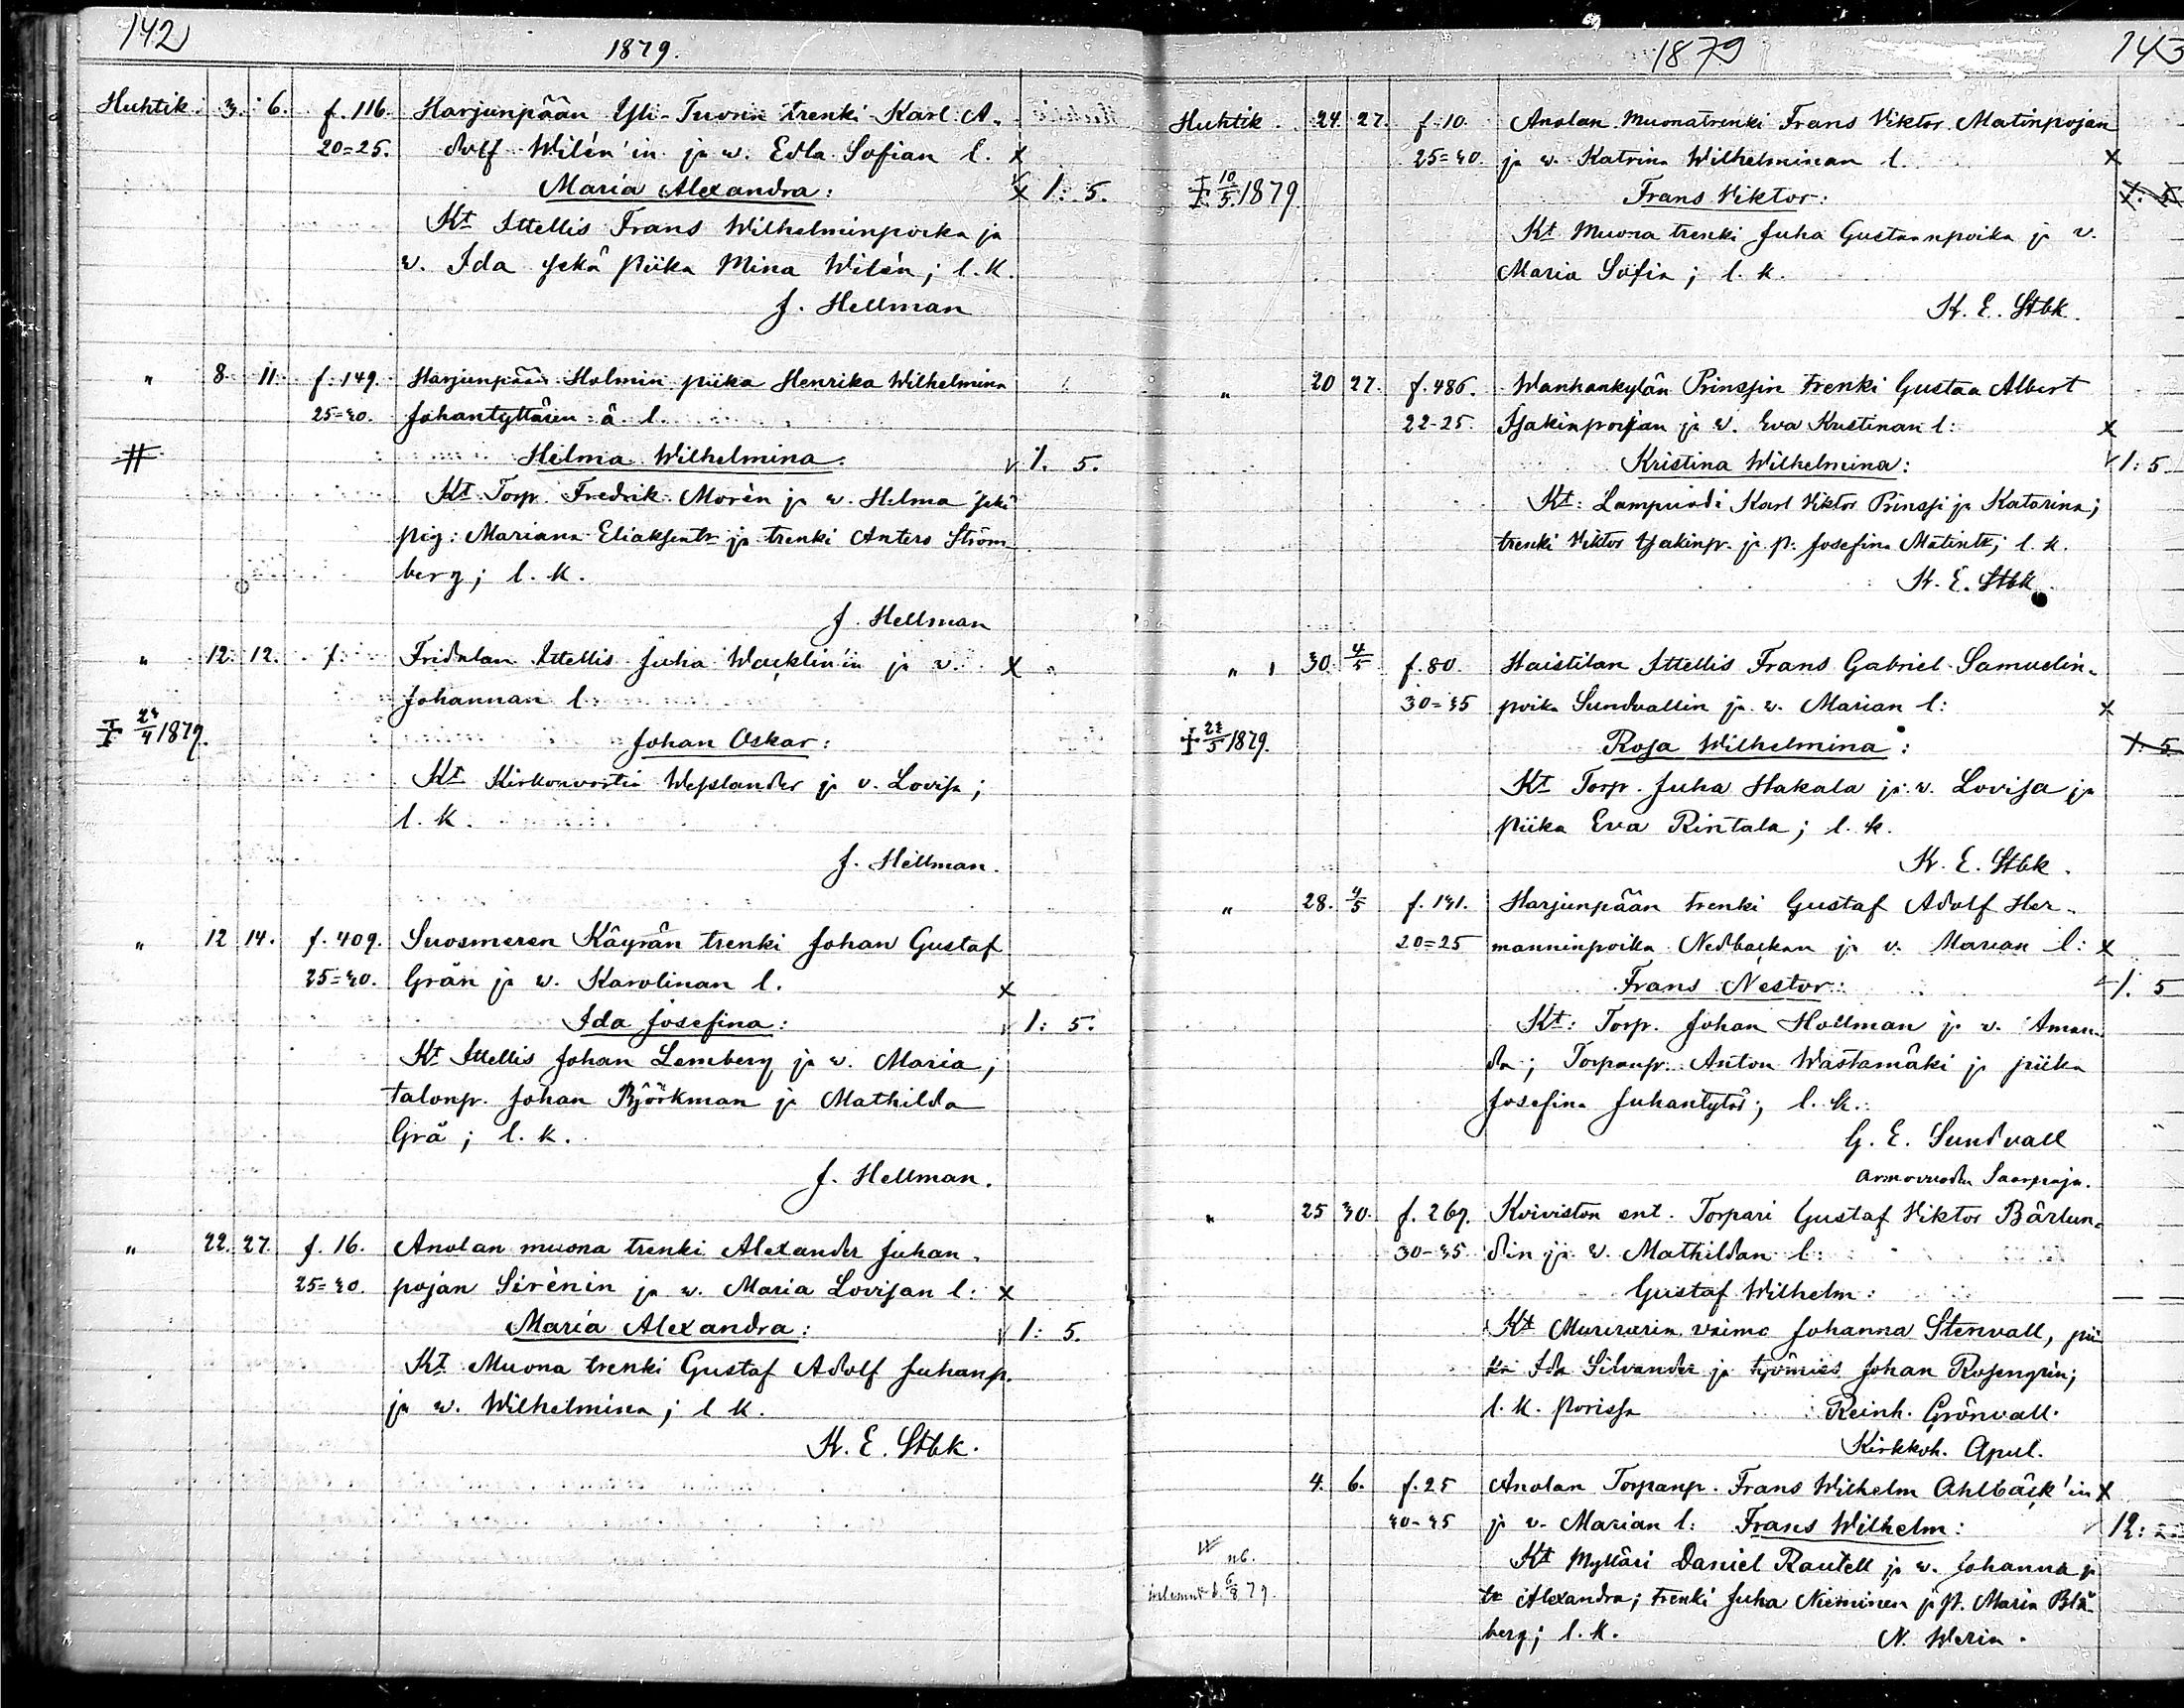 142
1879.
Huhtik. 3. 6. f. 116. Harjunpään Yli-Tuorin trenki Karl A-
20=25. dolf Wilén'in ja w. Edla Sofian l. x
Maria Alexandra: x 1: 5.
Kt Ittellis Frans Wilhelminpoika ja
w. Ida sekä Piika Mina Wilén; l. k.
J. Hellman
" 8. 11. f. 149. Harjunpään Holmin piika Henrika Wilhelmina
25=30. Johantyttären ä. l.
# Helma Wilhelmina. v 1. 5.
Kt Torp. Fredrik Morén ja w. Helma sekä
pig: Mariana Eliaksentr ja trenki Antero Ström-
berg; l. k.
J. Hellman
" 12. 12. f. Fridalan Ittellis Juha Wacklin'in ja v. x "
Johannan l.
‡ 24/4 1879. Johan Oskar:
Kt Kirkonvartia Wesslander ja v. Lovisa;
l. k.
J. Hellman.
" 12 14. f. 409. Suosmeren Käyrän trenki Johan Gustaf
25=30. Grän ja w. Karolinan l. x
Ida Josefina: v 1: 5.
Kt Ittellis Johan Lemberg ja w. Maria;
talonp. Johan Björkman ja Mathilda
Grä; l. k.
J. Hellman.
" 22. 27. f. 16. Anolan muona trenki Alexander Juhan-
25=30. pojan Sirénin ja w. Maria Lovisan l: x
Maria Alexandra: v 1: 5.
Kt Muona trenki Gustaf Adolf Juhanp.
ja w. Wilhelmina; l k.
K. E. Stbk.
1879 143
Huhtik. 24. 27. f. 10. Anolan Muonatrenki Frans Viktor Matinpojan
25=30. ja w. Katrina Wilhelminan l. x
‡ 10/5 1879. Frans Viktor: 1. 5
Kt Muona trenki Juha Gustaanpoika ja v.
Maria Sofia; l. k.
K. E. Stbk.
" 20 27. f. 486. Wanhankylän Prinssin trenki Gustaa Albert
22-25. Isakinpoijan ja w. Eva Kustinan l: x
Kristina Wilhelmina: v 1: 5
Kt: Lampuodi Karl Viktor Prinssi ja Katarina;
trenki Viktor Isakinp. ja p. Josefina Matintr; l. k.
K. E. Stbk.
" 30. 4/5 f. 80. Haistilan Ittellis Frans Gabriel Samuelin-
30=35 poika Sundvallin ja w. Marian l: x
‡ 22/5 1879. Rosa Wilhelmina: 1. 5
Kt Torp. Juha Hakala ja w. Lovisa ja
piika Eva Rintala; l. k.
K. E. Stbk.
" 28. 4/5 f. 141. Harjunpään trenki Gustaf Adolf Her-
20=25 manninpoika Nedbackan ja v. Marian l: x
Frans Nestor: 1. 5
Kt: Torp. Johan Hollman ja v. Aman-
da; Torpanp. Anton Wästamäki ja piika
Josefina Juhantytör; l. k.
G. E. Sundvall
armovuoden Saarnaja.
" 25 30. f. 269. Koiviston ent. Torpari Gustaf Viktor Bärlun-
30-35 din ja w. Mathildan l:
Gustaf Wilhelm: — —
Kt Murararin vaimo Johanna Stenvall, pii-
ka Ida Silvander ja työmies Johan Rosengrén;
l. k. Porissa Reinh. Grönvall.
Kirkkoh. Apul.
4. 6. f. 25 Anolan Torpanp. Frans Wilhelm Ahlbäck'in x
40-45 ja v. Marian l: Frans Wilhelm: 12:
nb. Kt Mylläri Daniel Rautell ja w. Johanna ja
6/8 79. tr Alexandra; trenki Juha Nieminen ja p. Maria Blå-
berg; l. k. N. Werin.